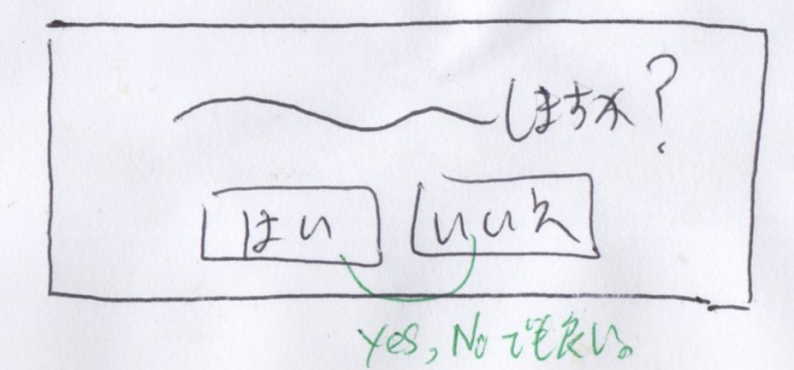 しますか?
はい いいえ
Yes, Noでも良い。